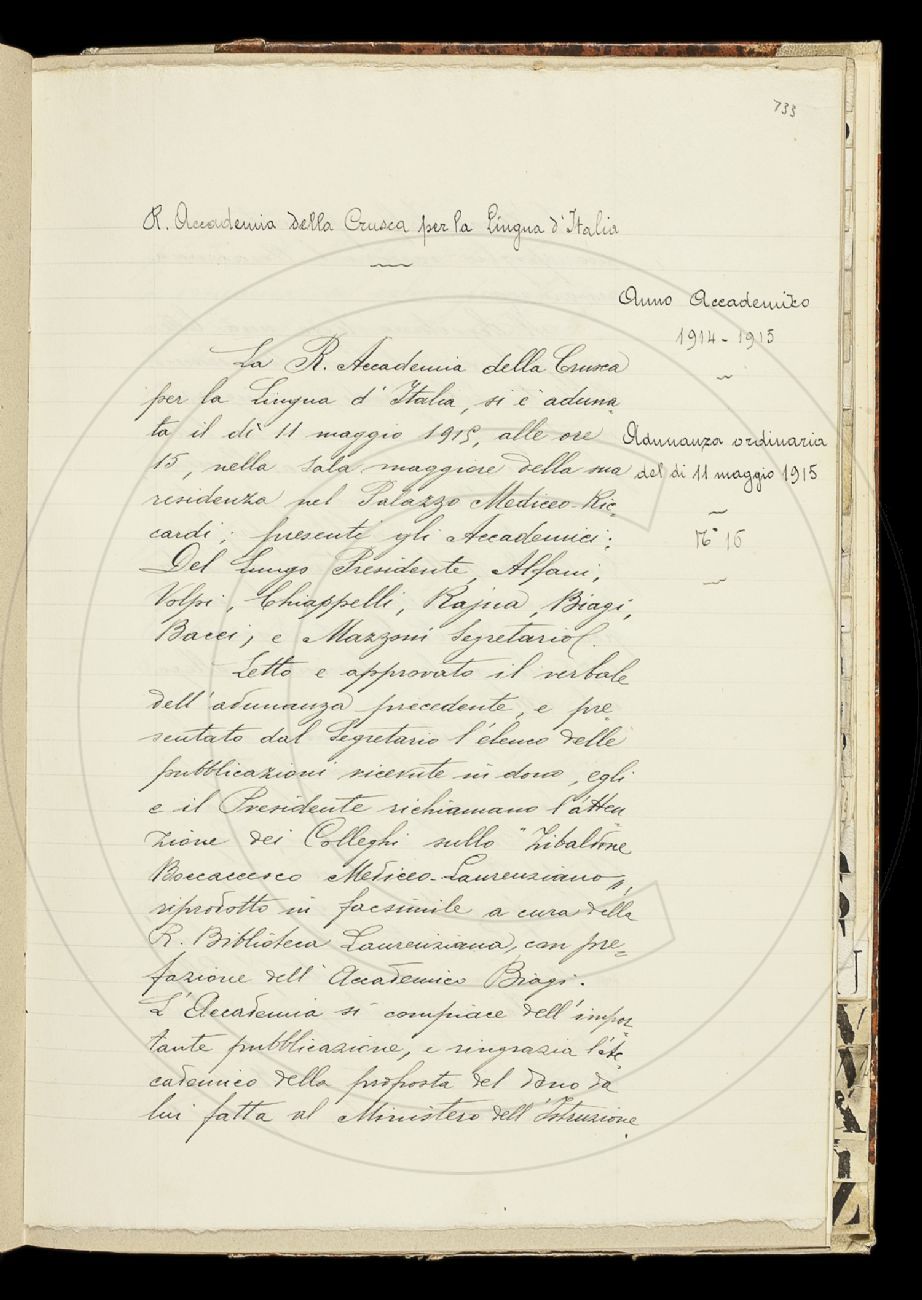 733
R. Accademia della Crusca per la Lingua d'Italia
Anno Accademico
1914-1915
La R. Accademia della Crusca
per la Lingua d'Italia, si è aduna-
ta il dì 11 maggio 1915, alle ore
15, nella sala maggiore della sua
residenza nel Palazzo Mediceo-Ric-
cardi; presenti gli Accademici:
Del Lungo Presidente, Alfani,
Volpi, Chiappelli, Rajna, Biagi,
Bacci, e Mazzoni Segretario.
Adunanza ordinaria
del dì 11 maggio 1915
N° 16
Letto e approvato il verbale
dell'adunanza precedente, e pre-
sentato dal Segretario l'elenco delle
pubblicazioni ricevute in dono, egli
e il Presidente richiamano l'atten-
zione dei Colleghi sullo "Zibaldone
Boccaccesco Mediceo-Laurenziano",
riprodotto in facsimile a cura della
R. Biblioteca Laurenziana, con pre-
fazione dell'Accademico Biagi.
L'Accademia si compiace dell'impor-
tante pubblicazione, e ringrazia l'Ac-
cademico della proposta del dono da
lui fatta al Ministero dell'Istruzione